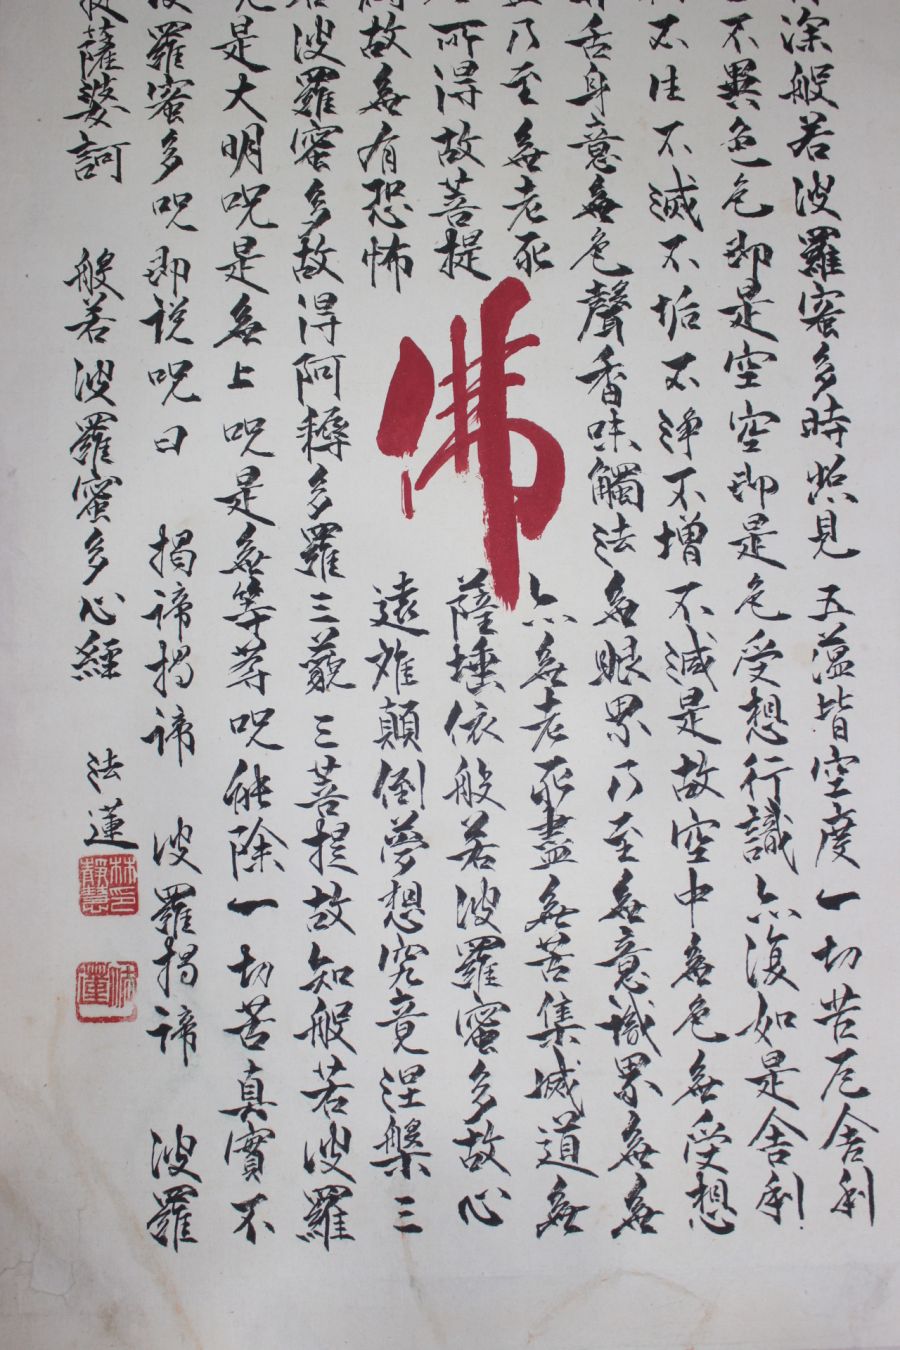 深般若波羅蜜多時照見五蘊皆空度一切苦厄舍利
不異色色即是空空即是色受想行識亦復如是舍利
不生不滅不垢不淨不增不減是故空中無色無受想
舌身意無色聲香味觸法無眼界乃至無意識界無無
乃至無老死
亦無老死盡無苦集滅道無
所得故菩提
薩埵依般若波羅蜜多故心
故無有恐怖
遠離顛倒夢想究竟涅槃三
波羅蜜多故得阿耨多羅三藐三菩提故知般若波羅
是大明呪是無上呪是無等等呪能除一切苦真實不
波羅蜜多呪即說呪曰 揭諦揭諦 波羅揭諦 波羅
薩婆訶 般若波羅蜜多心經 法蓮
佛